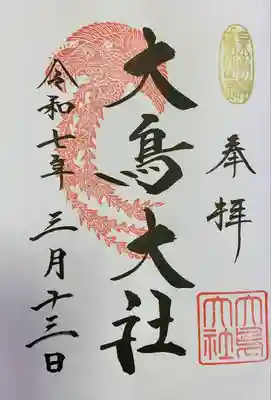 奉拝
大鳥大社
令和七年 三月十三日
大鳥大社